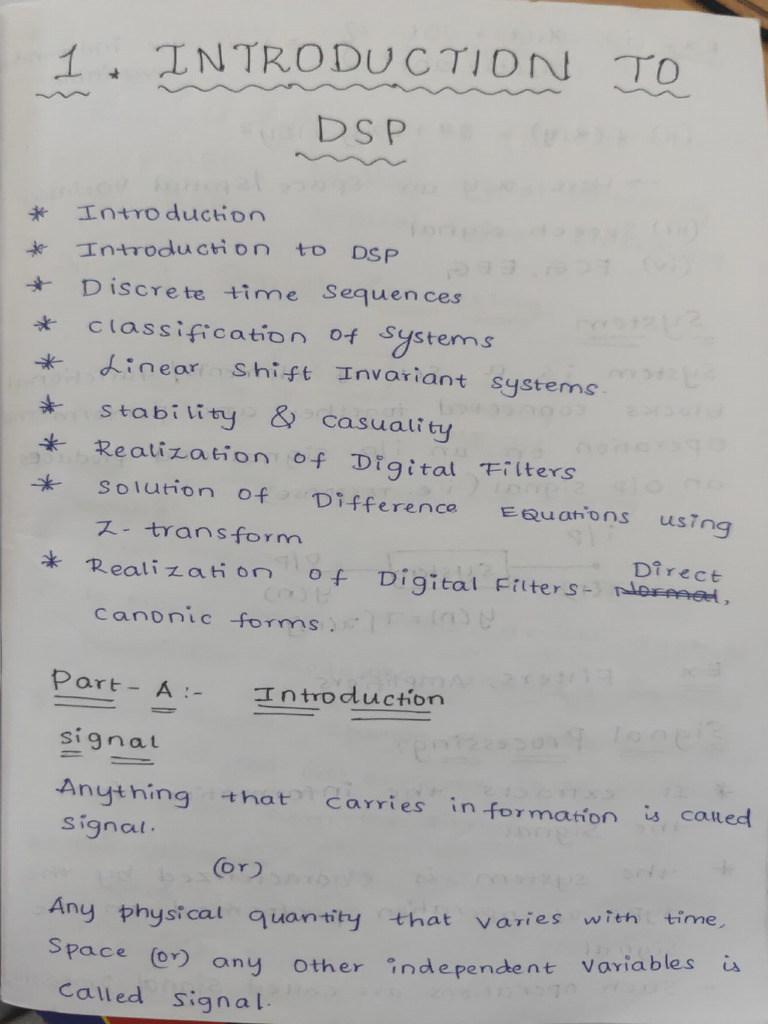 1. INTRODUCTION TO
DSP
* Introduction
* Introduction to DSP
* Discrete time sequences
* classification of systems
* Linear shift Invariant systems.
* stability & casuality
* Realization of Digital Filters
* solution of Difference EQuations using
Z-transform
* Realization of Digital Filters- Normal, Direct
canonic forms.
Part-A :- Introduction
signal
Anything that carries information is called
signal.
(or)
Any physical quantity that varies with time,
Space (or) any other independent variables is
called signal.